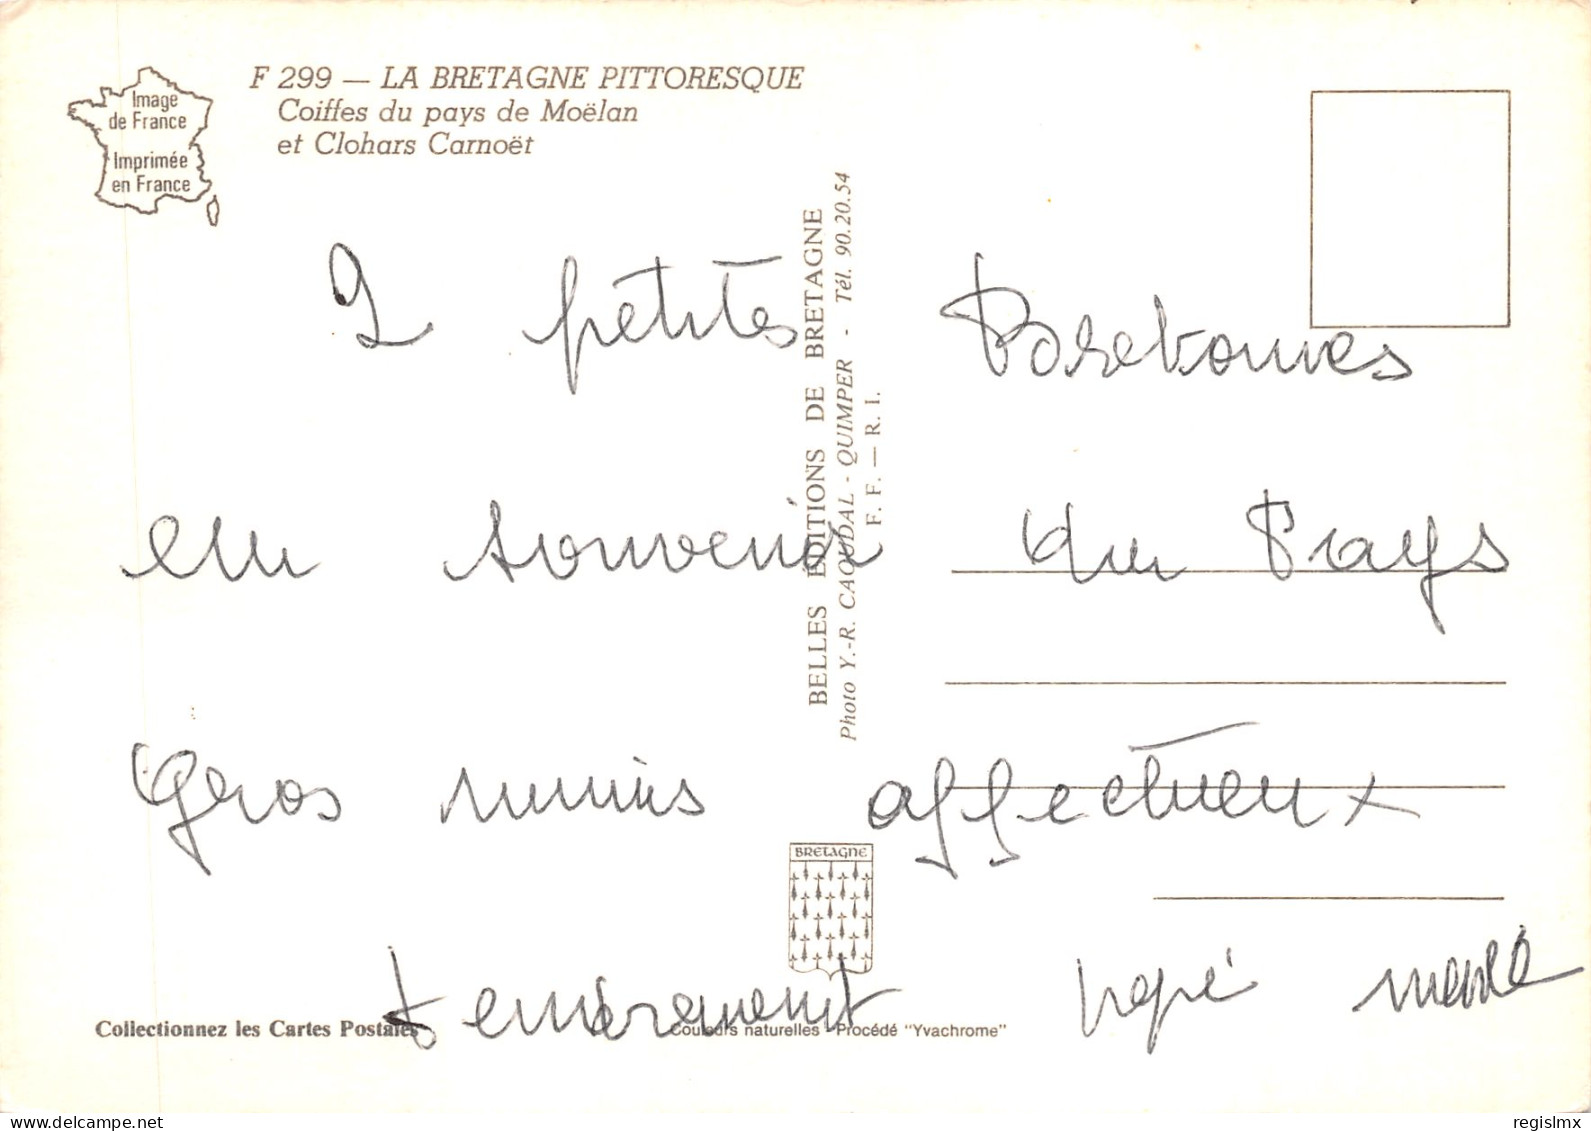 F 299 — LA BRETAGNE PITTORESQUE
Coiffes du pays de Moëlan
et Clohars Carnoët
Image
de France
Imprimée
en France
BELLES ÉDITIONS DE BRETAGNE
Photo Y.-R. CAOUDAL - QUIMPER - Tél. 90.20.54
F. F. — R. I.
2 petites Bretonnes
en souvenir du Pays
Gros mimis affectueux
tendrement pépé mémé
BRETAGNE
Collectionnez les Cartes Postales
Couleurs naturelles - Procédé "Yvachrome"
regislmx